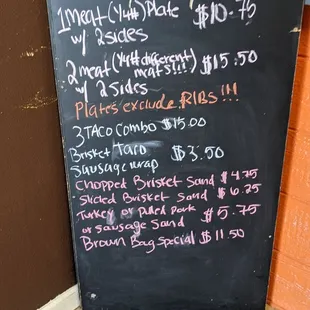 1 meat (1/4#) Plate $10.75
w/ 2sides
2 meat (1/4# different meats!!!) $15.50
w/ 2 sides
Plates exclude RIBS!!!
3 TACO COMBO $15.00
Brisket taco
Sausage wrap $3.50
Chopped Brisket Sand $4.75
Sliced Brisket Sand $6.25
Turkey or Pulled Pork
or Sausage Sand $5.75
Brown Bag Special $11.50